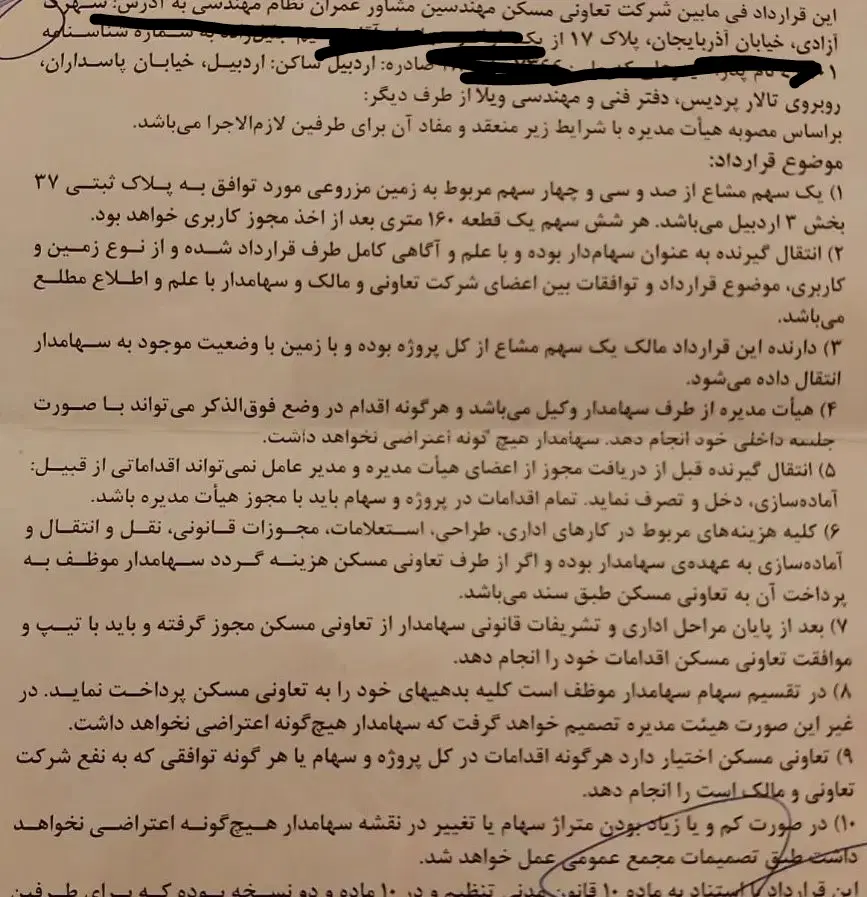 این قرارداد فی مابین شرکت تعاونی مسکن مهندسین مشاور عمران نظام مهندسی به آدرس: شهرک
آزادی، خیابان آذربایجان، پلاک ۱۷ از یک به شماره شناسنامه
صادره: اردبیل ساکن: اردبیل، خیابان پاسداران،
روبروی تالار پردیس، دفتر فنی و مهندسی ویلا از طرف دیگر:
براساس مصوبه هیأت مدیره با شرایط زیر منعقد و مفاد آن برای طرفین لازم‌الاجرا می‌باشد.
موضوع قرارداد:
۱) یک سهم مشاع از صد و سی و چهار سهم مربوط به زمین مزروعی مورد توافق به پلاک ثبتی ۳۷
بخش ۳ اردبیل می‌باشد. هر شش سهم یک قطعه ۱۶۰ متری بعد از اخذ مجوز کاربری خواهد بود.
۲) انتقال گیرنده به عنوان سهام‌دار بوده و با علم و آگاهی کامل طرف قرارداد شده و از نوع زمین و
کاربری، موضوع قرارداد و توافقات بین اعضای شرکت تعاونی و مالک و سهامدار با علم و اطلاع مطلع
می‌باشد.
۳) دارنده این قرارداد مالک یک سهم مشاع از کل پروژه بوده و با زمین با وضعیت موجود به سهامدار
انتقال داده می‌شود.
۴) هیأت مدیره از طرف سهامدار وکیل می‌باشد و هرگونه اقدام در وضع فوق‌الذکر می‌تواند با صورت
جلسه داخلی خود انجام دهد. سهامدار هیچ گونه اعتراضی نخواهد داشت.
۵) انتقال گیرنده قبل از دریافت مجوز از اعضای هیأت مدیره و مدیر عامل نمی‌تواند اقداماتی از قبیل:
آماده‌سازی، دخل و تصرف نماید. تمام اقدامات در پروژه و سهام باید با مجوز هیأت مدیره باشد.
۶) کلیه هزینه‌های مربوط در کارهای اداری، طراحی، استعلامات، مجوزات قانونی، نقل و انتقال و
آماده‌سازی به عهده‌ی سهامدار بوده و اگر از طرف تعاونی مسکن هزینه گردد سهامدار موظف به
پرداخت آن به تعاونی مسکن طبق سند می‌باشد.
۷) بعد از پایان مراحل اداری و تشریفات قانونی سهامدار از تعاونی مسکن مجوز گرفته و باید با تیپ و
موافقت تعاونی مسکن اقدامات خود را انجام دهد.
۸) در تقسیم سهام سهامدار موظف است کلیه بدهیهای خود را به تعاونی مسکن پرداخت نماید. در
غیر این صورت هیئت مدیره تصمیم خواهد گرفت که سهامدار هیچ‌گونه اعتراضی نخواهد داشت.
۹) تعاونی مسکن اختیار دارد هرگونه اقدامات در کل پروژه و سهام یا هر گونه توافقی که به نفع شرکت
تعاونی و مالک است را انجام دهد.
۱۰) در صورت کم و یا زیاد بودن متراژ سهام یا تغییر در نقشه سهامدار هیچ‌گونه اعتراضی نخواهد
داشت طبق تصمیمات مجمع عمومی عمل خواهد شد.
این قرارداد با استناد به ماده ۱۰ قانون مدنی تنظیم و در ۱۰ ماده و دو نسخه بوده که برای طرفین